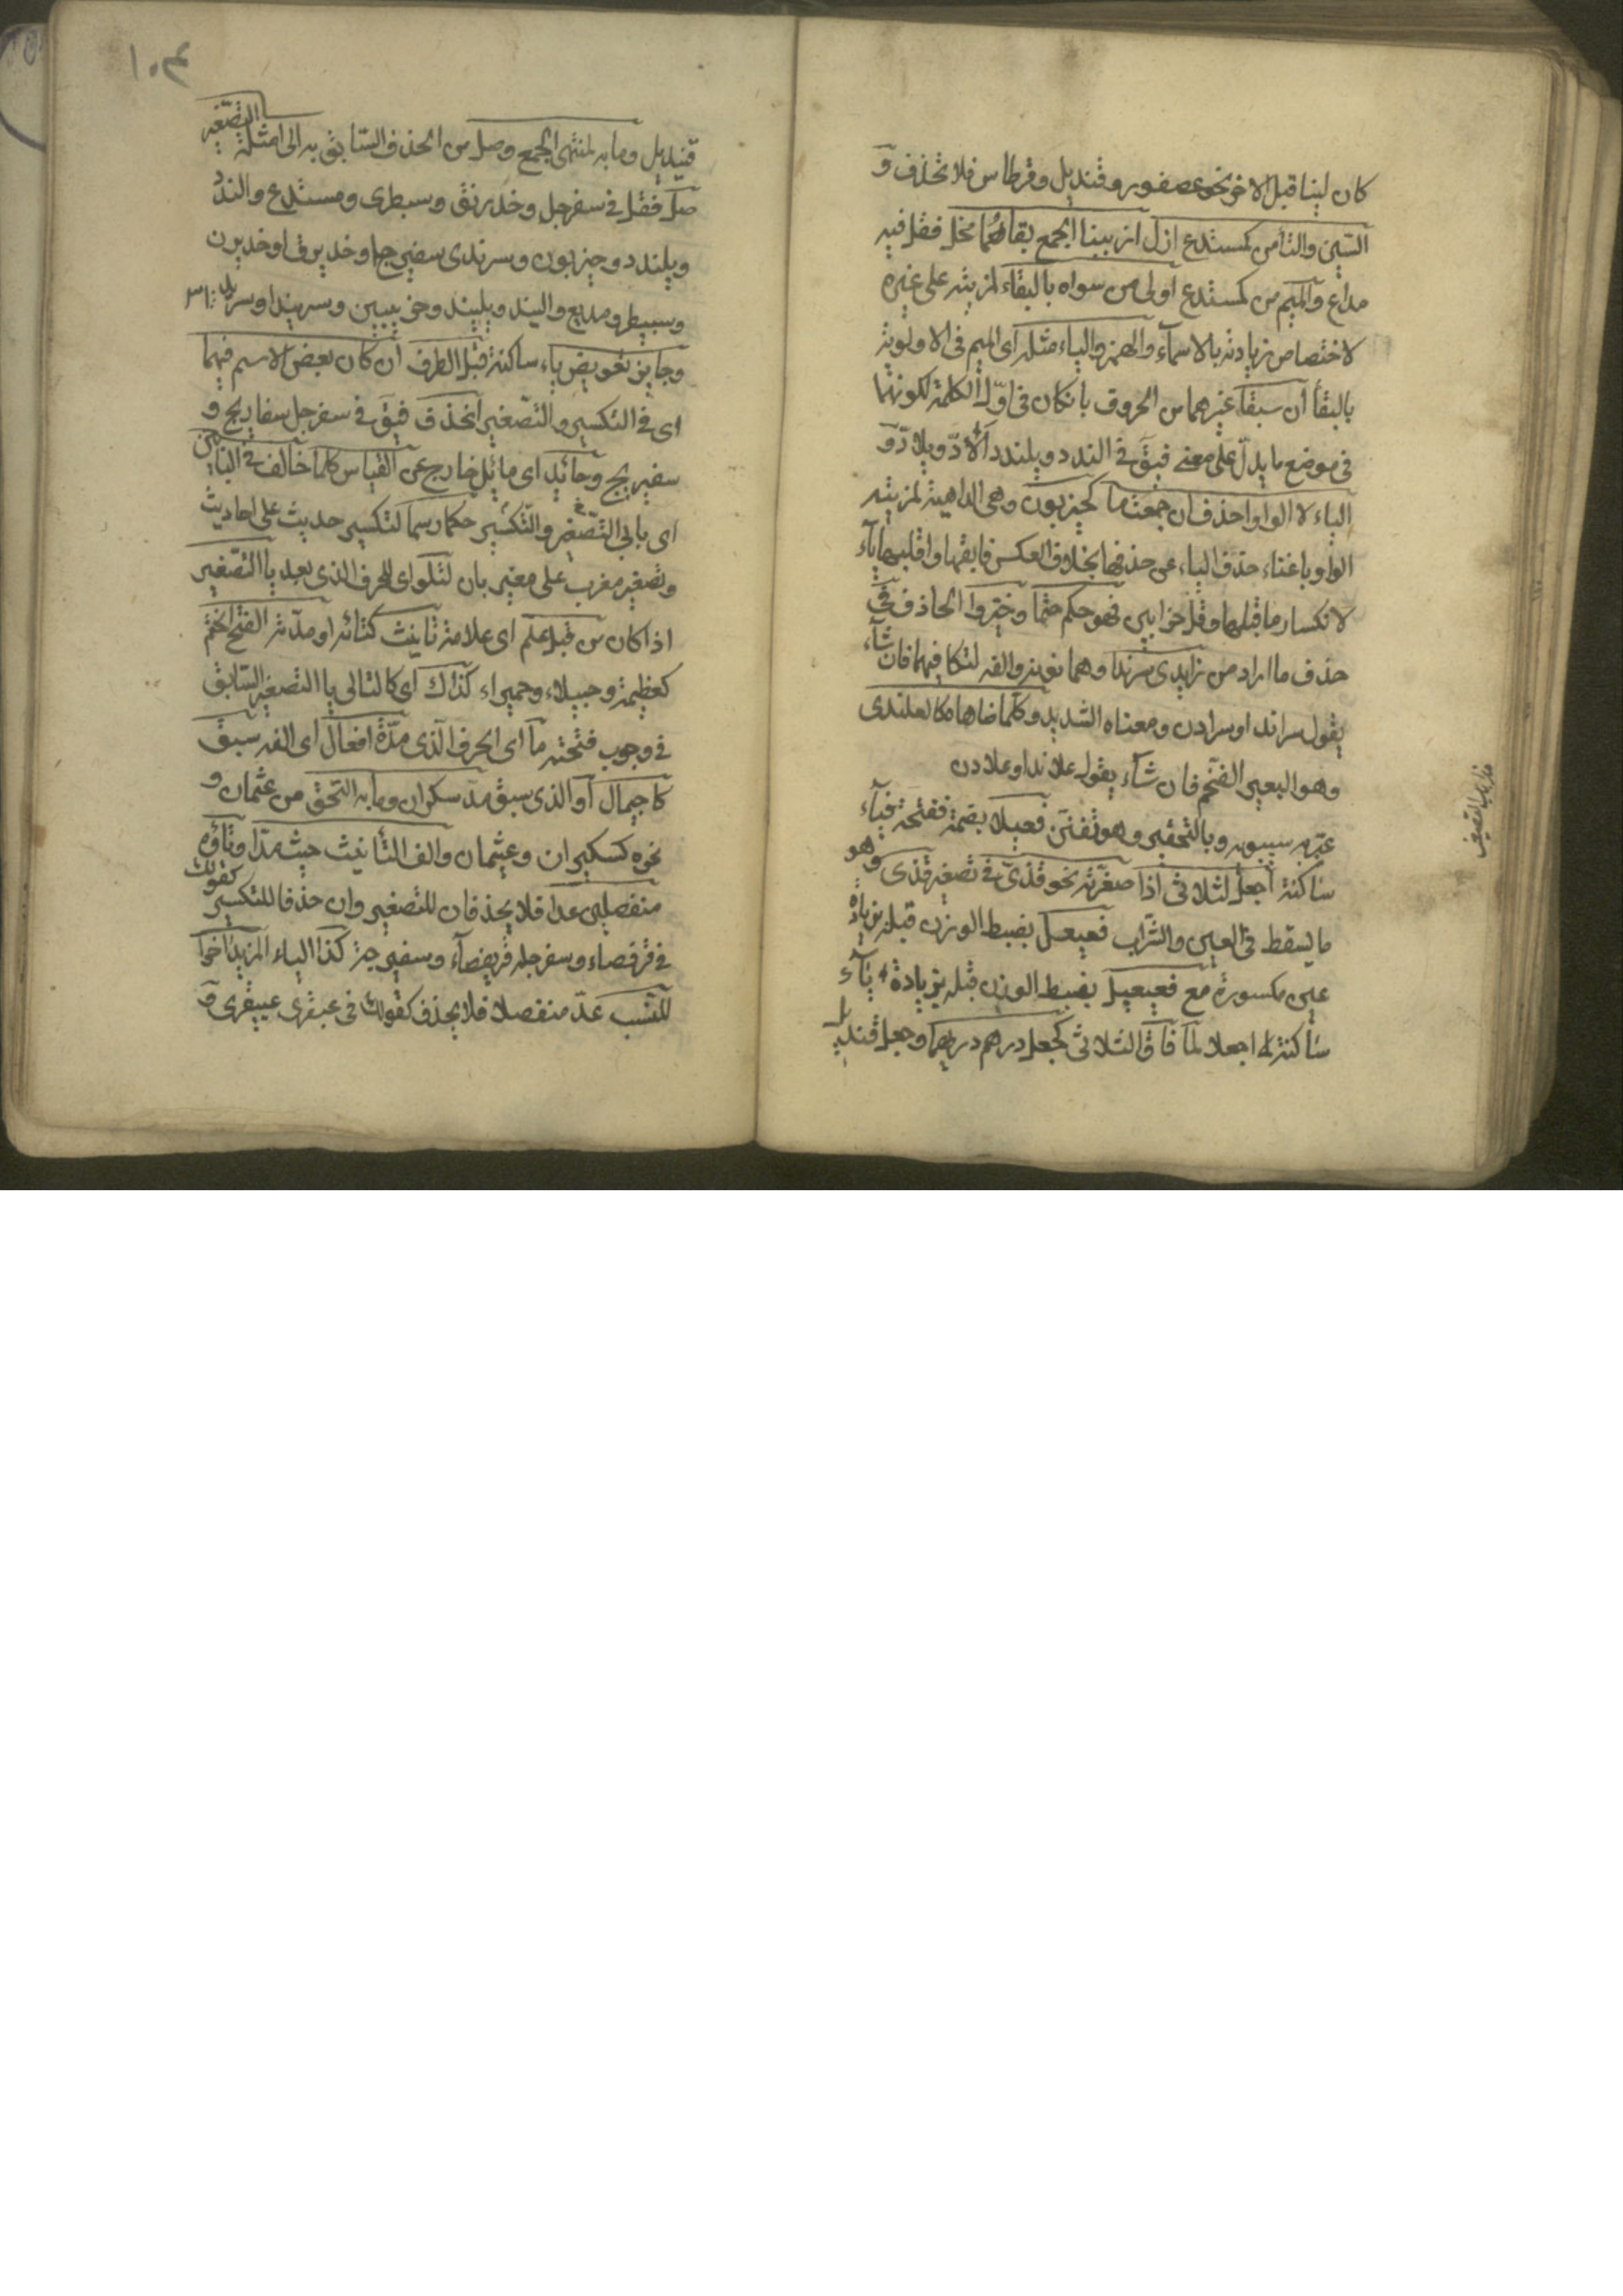 كان لينا قبل الاخر نحو عصفور وقنديل وقرطاس فلا تحذف و
السين والتا من كمستدع ازل اذ ببنا الجمع بقاهما مخل فقل فيه
مداع والميم من كمستدع اولى من سواه بالبقاء لمزيته على غيره
لاختصاص زيادته بالاسماء والهمز والياء مثله اى الميم فى الاولوية
بالبقا ان سبقا غيرهما من الحروف بان كان فى اول الكلمة لكونهما
فى موضع ما يدل على معنى فيق فى الندد ويلندد الاد ويلاد و
الياء لا الواو احذف ان جمعت ما كحيزبون وهى الداهية لمزية
الواو باغناء حذف الياء عن حذفها بخلاف العكس فابقها واقلبها ياء
لانكسار ما قبلها وقل حزابين فهو حكم حتما وخيروا الحاذف فى
حذف ما اراد من زايدى سرندا وهما نونه والفه لتكافيهما فان شاء
يقول سراند او سرادن ومعناه الشديد وكلما ضاهاه كالعلندى
وهو البعير الضخم فان شاء يقول علاندا وعلادن
عبر به سيبويه وبالتحقير وهو تفنن فعيلا بضمة ففتحة فياء
ساكنة اجعل لثلاثى اذا صغرته نحو قذى فى تصغير قذى وهو
ما يسقط فى العين والشراب فعيعل بضبط الوزن قبله بزيادة
عين مكسورة مع فعيعيل بضبط الوزن قبله بزيادة ياء
ساكنة له اجعلا لما فاق الثلاثى كجعل درهم دريهما وجعل قنديل
هذا باب التصغير
١٠٤
قنيديل وما به لمنتهى الجمع وصل من الحذف السابق به الى امثلة التصغير
صل فقل فى سفرجل وخدرنق وسبطرى ومستدع والندد
ويلندد وحيزبون وسرندى سفيرجا وخديرق او خديرن
وسبيطر ومديع واليند ويليند وحزيبين وسريندا وسريد
وجايز تعويض ياء ساكنة قبل الطرف ان كان بعض الاسم فيهما
اى فى التكسير والتصغير انحذف فيق فى سفرجل سفاريج و
سفيريج وحائد اى مائل خارج عن القياس كلما خالف فى البابين
اى بابى التصغير والتكسير حكما رسما لتكسير حديث على احاديث
وتصغير مغرب على مغير بان لتلو اى للحرف الذى بعد يا التصغير
اذا كان من قبل علم اى علامة تانيث كتائه او مدته الفتح انحتم
كعظيمة وحبيلاء وحميراء كذاك اى كالتالى يا التصغير السابق
فى وجوب فتحته ما اى الحرف الذى مدة افعال اى الفه سبق
كاجيمال او الذى سبق مد سكران وما به التحق من عثمان و
نحوه كسكيران وعثيمان والف التأنيث حيث مدا وتاؤه
منفصلين عدا فلا يحذفان للتصغير وان حذفا للتكسير كقولك
فى قرفصاء وسفرجله قريفصاء وسفيرجة كذا الياء المزيد اخرا
للنسب عد منفصلا فلا يحذف كقولك فى عبقرى عبيقرى و